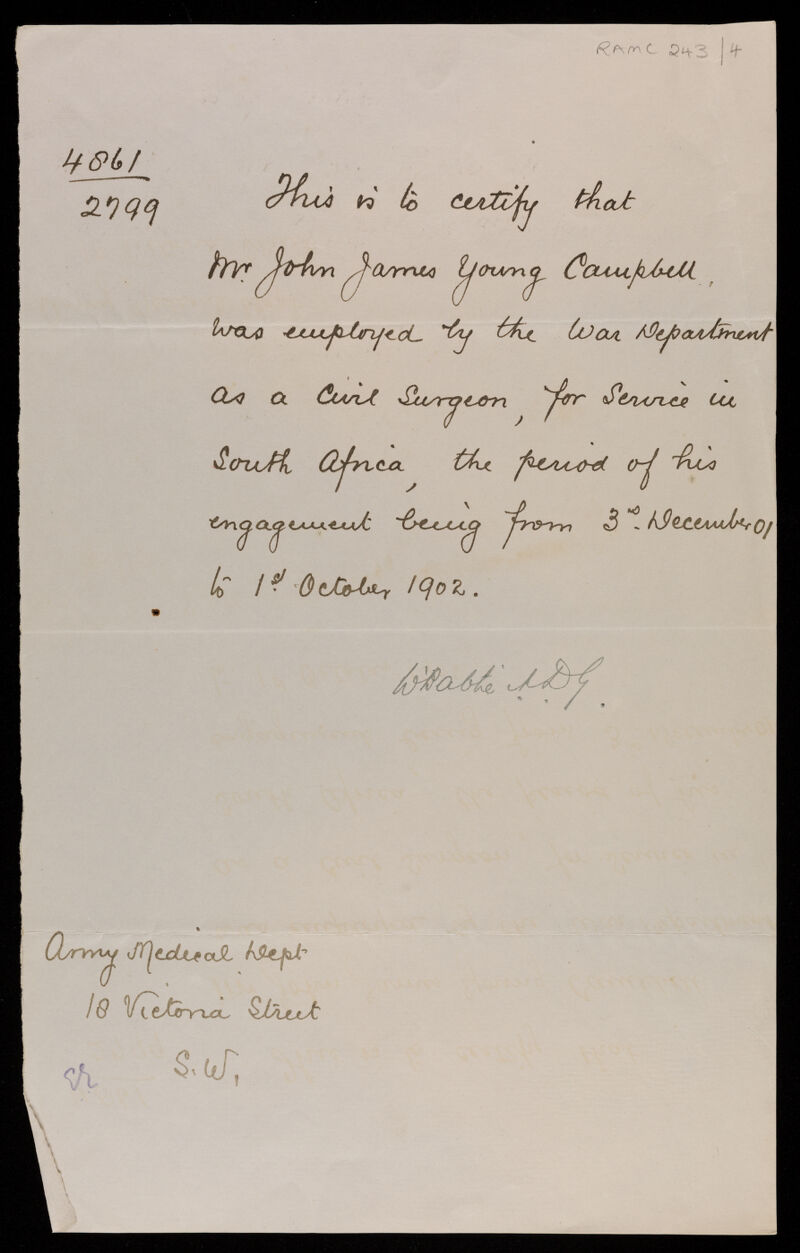 RAMC 243/4
4861
2799
This is to certify that
Mr. John James Young Campbell,
was employed by the War Department
as a Civil Surgeon, for Service in
South Africa, the period of his
engagement being from 3rd. December 01
to 1st. October 1902.
W Babtie A.D.G.
Army Medical Dept
18 Victoria Street
S.W.